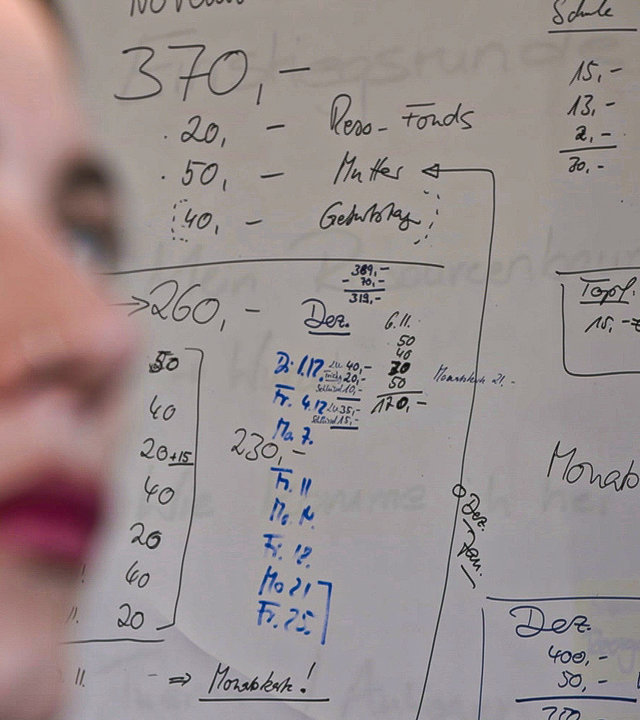 370,-
20, - Reso-Fonds
50, - Mutter
40, - Geburtstag
→260,-
50
40
20+15
40
20
40
20
⇒ Monatskarte!
389,-
- 70,-
319,-
Dez.
Di 1.12 40,-
20,-
Schlüssel 10,-
Fr. 4.12 35,-
Schlüssel 15,-
Mo. 7.
230,-
Fr. 11
Mo. 14.
Fr. 18.
Mo 21
Fr. 25.
6.11.
50
40
30
50
170,-
Monatskarte 21.-
Dez.
Jan.
Schule
15,-
13,-
2,-
30,-
Topf.
15,-
Monatsk
Dez.
400,-
50,-